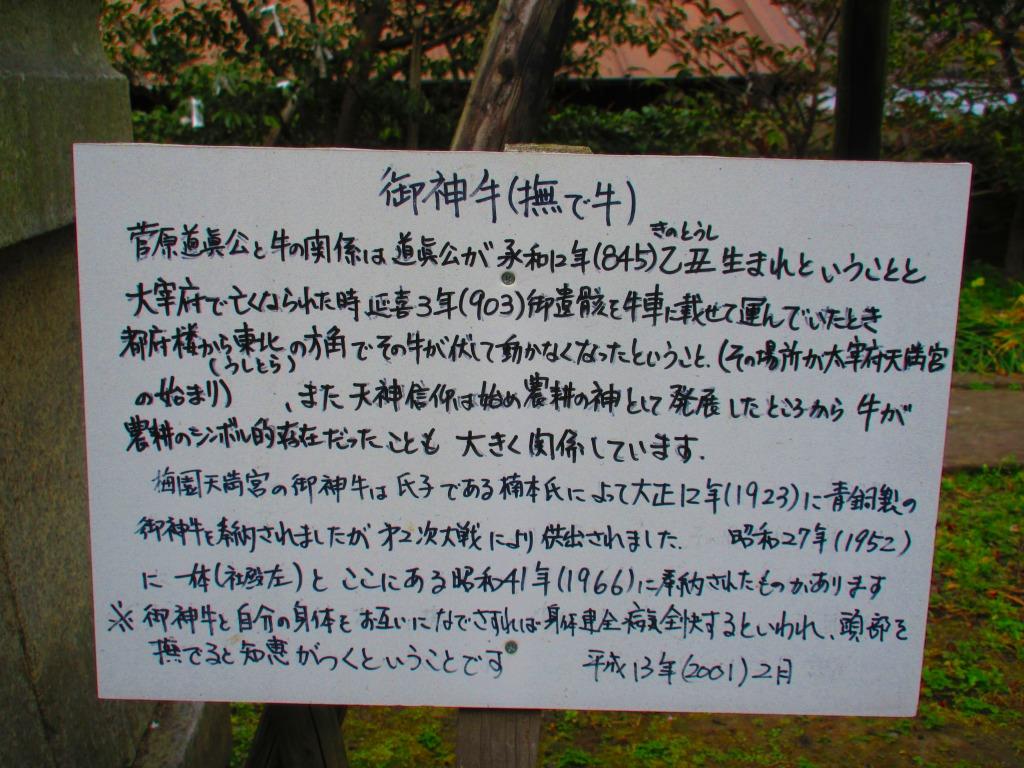 御神牛(撫で牛)
きのとうし
菅原道眞公と牛の関係は道眞公が承和12年(845)乙丑生まれということと
大宰府で亡くなられた時延喜3年(903)御遺骸を牛車に載せて運んでいたとき
都府楼から東北の方角でその牛が伏して動かなくなったということ.(その場所が太宰府天満宮
(うしとら)
の始まり)、また天神信仰は始め農耕の神として発展したところから牛が
農耕のシンボル的存在だったことも大きく関係しています.
梅園天満宮の御神牛は氏子である楠本氏によって大正12年(1923)に青銅製の
御神牛を奉納されましたが才2次大戦により供出されました. 昭和27年(1952)
に一体(社殿左)とここにある昭和41年(1966)に奉納されたものがあります
※御神牛と自分の身体をお互いになでさすれば身体健全病気全快するといわれ、頭部を
撫でると知恵がつくということです 平成13年(2001)2月